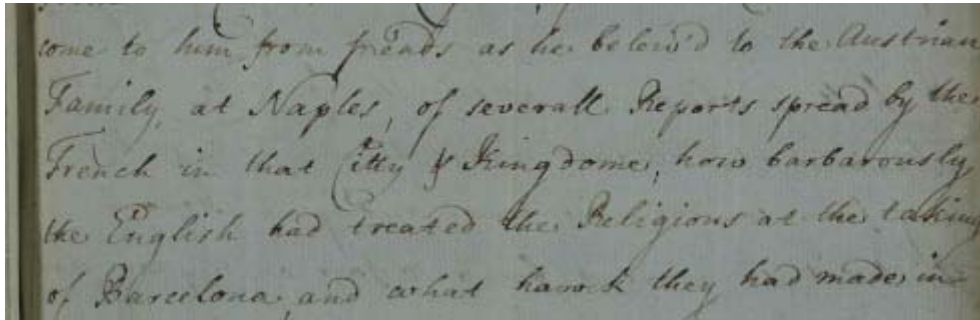 come to him from freinds as he beleiv'd to the Austrian
Family, at Naples, of severall Reports spread by the
French in that Citty & Kingdome, how barbarously
the English had treated the Religious at the taking
of Barcelona, and what havock they had made in